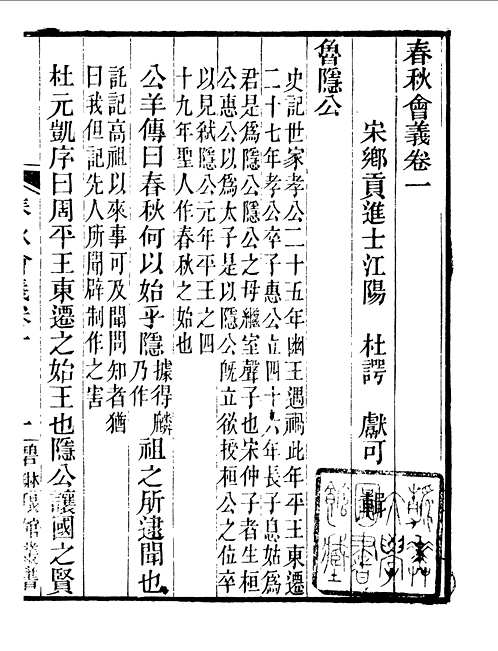 春秋會義卷一
宋鄉貢進士江陽　杜諤　獻可
魯隱公
史記世家孝公二十五年幽王遇禍此年平王東遷
二十七年孝公卒子惠公立四十六年長子息姑爲
君是爲隱公隱公之母繼室聲子也宋仲子者生桓
公惠公以爲太子是以隱公旣立欲授桓公之位卒
以見弒隱公元年平王之四
十九年聖人作春秋之始也
公羊傳曰春秋何以始乎隱
據得麟
乃作
祖之所逮聞也
託記高祖以來事可及聞問知者猶
曰我但記先人所聞辟制作之害
杜元凱序曰周平王東遷之始王也隱公讓國之賢
春秋會義卷一
一
碧琳琅館叢書